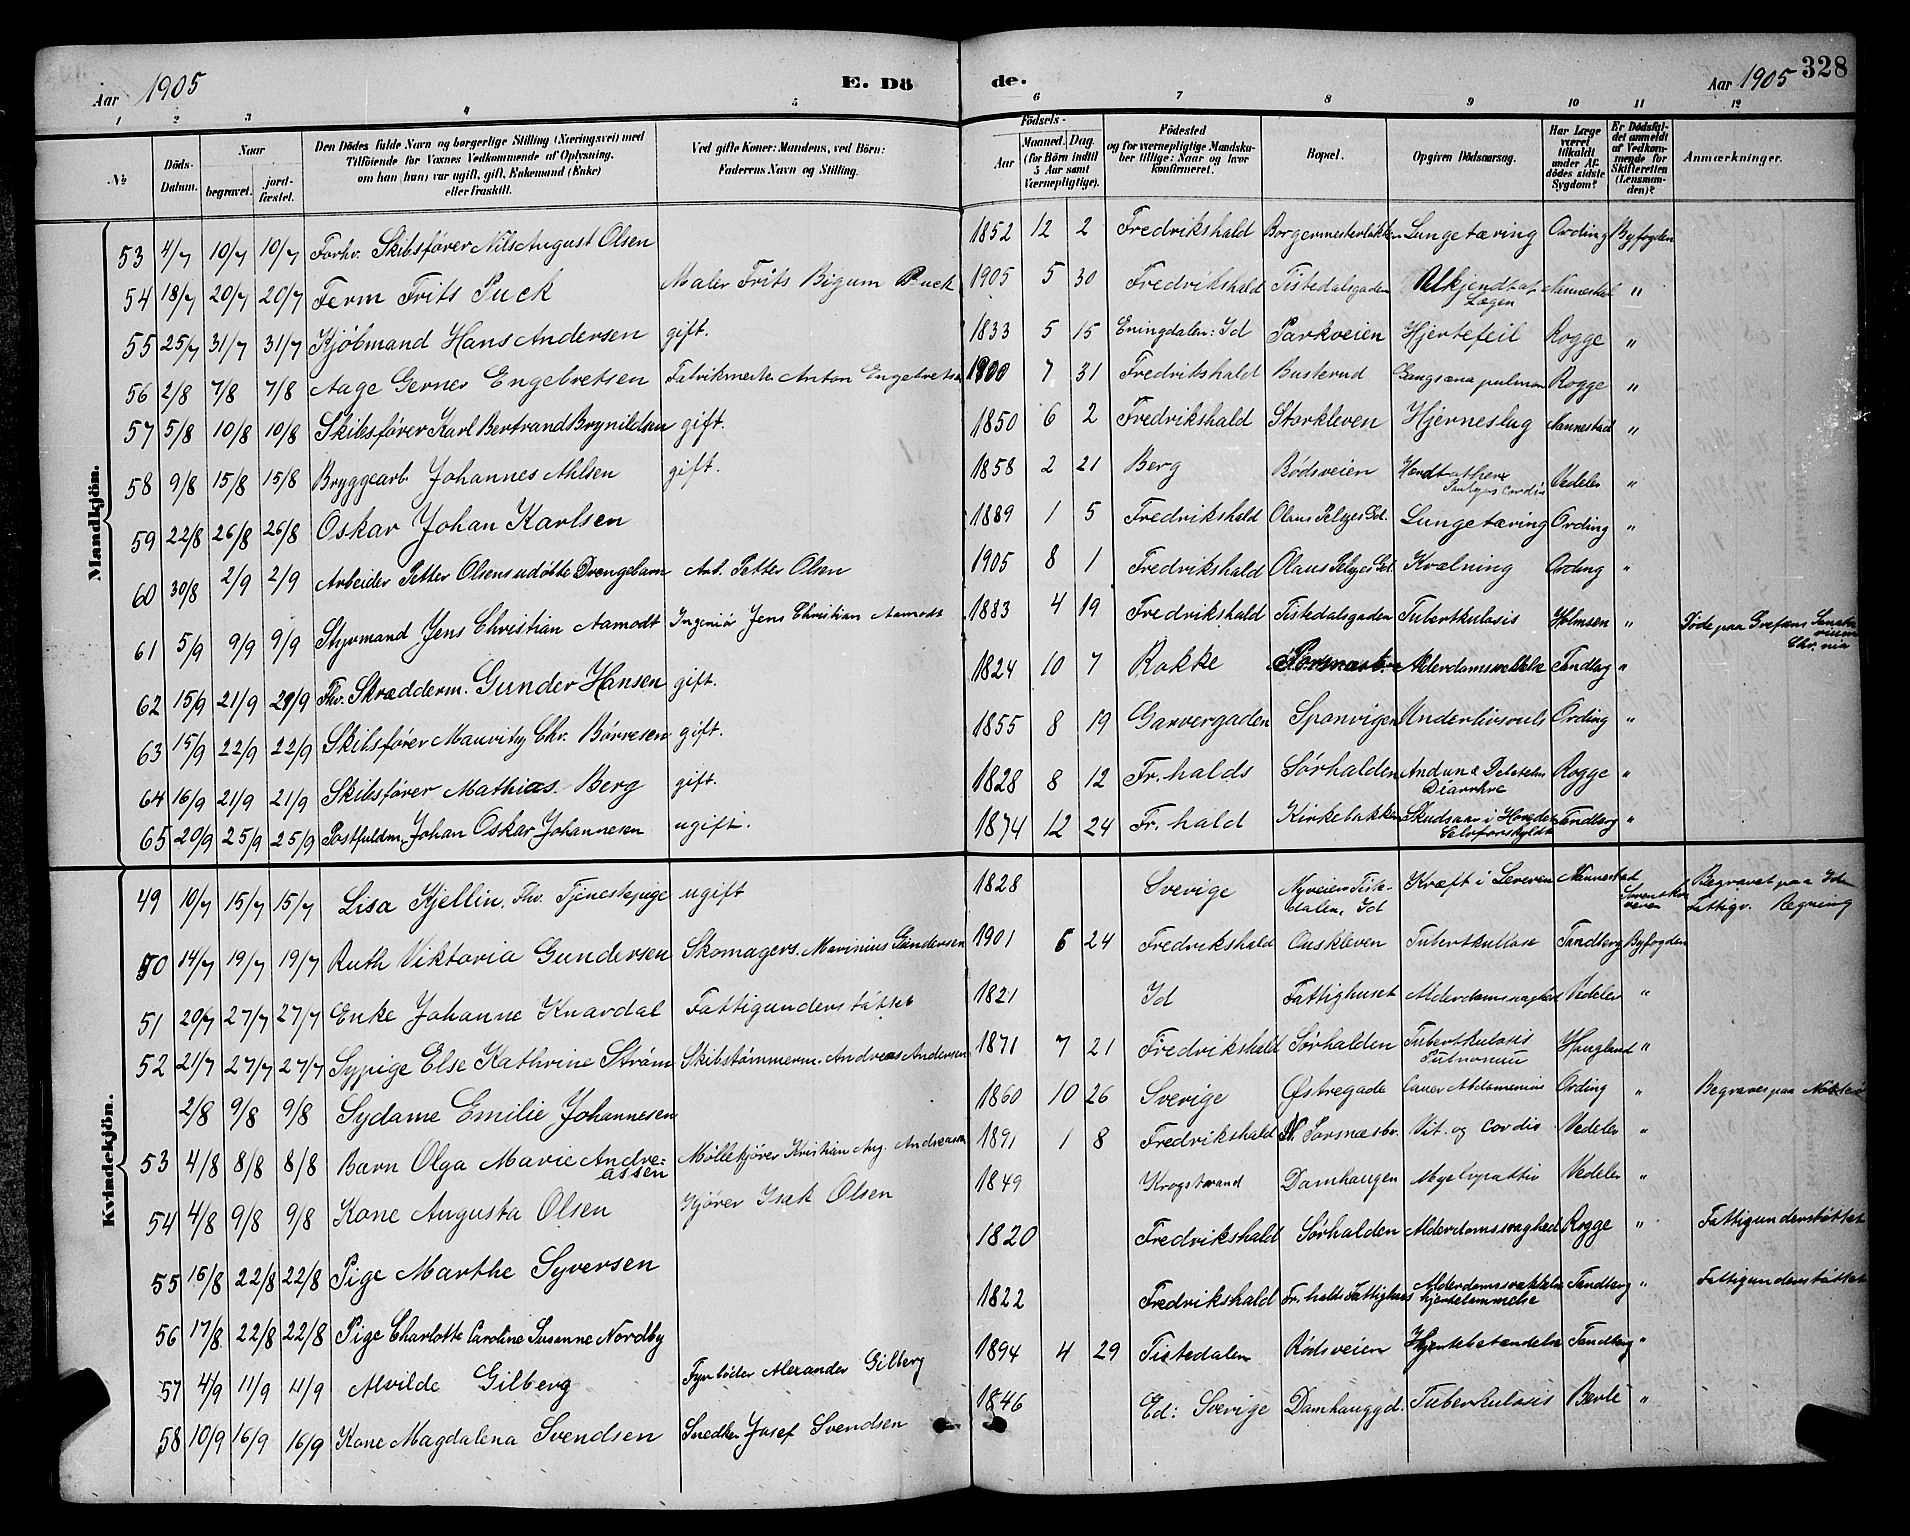 Aar 1905 E. Dö de. Aar 1905 328
1 2 3 4 5 6 7 8 9 10 11 12
№ Döds-Datum. Naar begravet. jordfæstet. Den Dödes fulde Navn og borgerlige Stilling (Næringsvei) med Tilföiende for Voxnes Vedkommende af Oplysning, om han (hun) var ugift, gift, Enkemand (Enke) eller fraskilt. Ved gifte Koner: Mandens, ved Börn: Faderens Navn og Stilling. Födsels- Aar Maaned. Dag. (for Börn indtil 5 Aar samt Værnepligtige). Födested og for værnepligtige Mandskaber tillige: Naar og hvor konfirmeret. Bopæl. Opgiven Dödsaarsag. Har Læge været tilkaldt under Afdödes sidste Sygdom? Er Dödsfaldet anmeldt af Vedkommende for Skifteretten (Lensmanden)? Anmærkninger.
Mandkjön.
53 4/7 10/7 10/7 Forhv. Skibsfører Nils August Olsen 1852 12 2 Fredrikshald Borgermesterløkken Lungetæring Ording Byfogden
54 18/7 20/7 20/7 Ferm Frits Puck Maler Frits Bigum Puck 1905 5 30 Fredrikshald Tistedalsgaden Lægen Nannestad "
55 25/7 31/7 31/7 Kjøbmand Hans Andersen gift. 1833 5 15 Eningdalen: Id Parkveien Hjertefeil Rogge "
56 2/8 7/8 7/8 Aage Gerner Engebretsen Fabrikmester Anton Engebretsen 1900 7 31 Fredrikshald Busterud Rogge "
57 5/8 10/8 10/8 Skibsfører Karl Bertrand Brynildsen gift. 1850 6 2 Fredrikshald Storkleven Hjerneslag Nannestad "
58 9/8 15/8 15/8 Bryggearb Johannes Ahlsen gift. 1858 2 21 Berg Rødsveien cordis Vedeler "
59 22/8 26/8 26/8 Oskar Johan Karlsen 1889 1 5 Fredrikshald Olaus Gd. Lungetæring Ording "
60 30/8 2/9 2/9 Arbeider Petter Olsens udøbte Drengebarn Arb. Petter Olsen 1905 8 1 Fredrikshald Olaus Gd. Kvælning Ording "
61 5/9 9/9 9/9 Styrmand Jens Christian Aamodt Ingeniør Jens Christian Aamodt 1883 4 19 Fredrikshald Tistedalsgaden Tuberkulosis Holmsen " Døde paa Grefsens Sanatorium Chr.nia
62 15/9 21/9 21/9 Fhv. Skræddderm. Gunder Hansen gift. 1824 10 7 Rokke Alderdomssvækkelse Tandberg "
63 15/9 22/9 22/9 Skibsfører Mauritz Chr. Børresen gift. 1855 8 19 Garvergaden Spanvigen Underlivssvulst Ording "
64 16/9 21/9 21/9 Skibsfører Mathias Berg gift. 1828 8 12 Fr.halds Sørhalden Diarrhre Rogge "
65 20/9 25/9 25/9 Postfuldm. Johan Oskar Johannesen ugift. 1874 12 24 Fr.hald Kirkebakken Skudsaar i Hovedet Selvforskyldt Tandberg "
Kvindekjön.
49 10/7 15/7 15/7 Lisa Kjellin, Fhv. Tjenestepige ugift 1828 Sverige Nyveien Tistedalen, Id Kræft i Leveren Nannestad Begravet paa Idn Fattigv. Regning
50 14/7 19/7 19/7 Ruth Viktoria Gundersen Skomagers. Marinius Gundersen 1901 6 24 Fredrikshald Ouskleven Tuberkulose Tandberg Byfogden
51 20/7 27/7 27/7 Enke Johanne Knardal Fattigunderstøttet 1821 Id Fattighuset Alderdomssvaghed Vedeler "
52 21/7 27/7 27/7 Sypige Else Kathrine Strøm Skibstømmerm. Andreas Andersen 1871 7 21 Fredrikshald Sørhalden Tuberkulosis Haagland "
2/8 9/8 9/8 Sydame Emilie Johannesen 1860 10 26 Sverige Østregade Ording " Begraves paa
53 4/8 8/8 8/8 Barn Olga Marie Andreassen Møllekjører Kristian Aug. Andreassen 1891 1 8 Fredrikshald Vit. og cordis Vedeler "
54 4/8 9/8 9/8 Kone Augusta Olsen Kjører Isak Olsen 1849 Krogstrand Damhaugen Vedeler "
55 16/8 22/8 22/8 Pige Marthe Syversen 1820 Fredrikshald Sørhalden Alderdomssvaghed Rogge " Fattigunderstøttet
56 17/8 22/8 22/8 Pige Charlotte Caroline Susanne Nordby 1822 Fredrikshald Fr.halds Fattighus Alderdomssvækkelse hjertelammelse Tandberg " Fattigunderstøttet
57 4/9 11/9 11/9 Alvilde Gilberg Fyrbøder Alexander Gilberg 1894 4 29 Tistedalen Rødsveien Hjertebetændelse Tandberg "
58 10/9 16/9 16/9 Kone Magdalena Svendsen Snedker Josef Svendsen 1846 Ed: Sverige Damhauggd. Tuberkulosis "